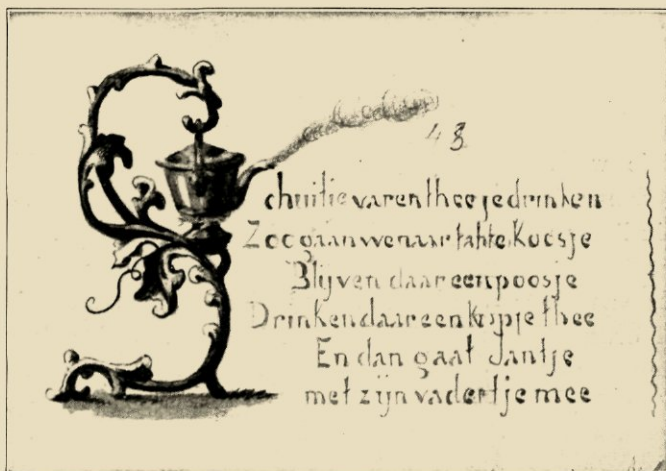 Schuitje varen theeje drinken
Zoo gaan we naar tante Koosje
Blijven daar een poosje
Drinken daar een kopje thee
En dan gaat Jantje
met zijn vadertje mee